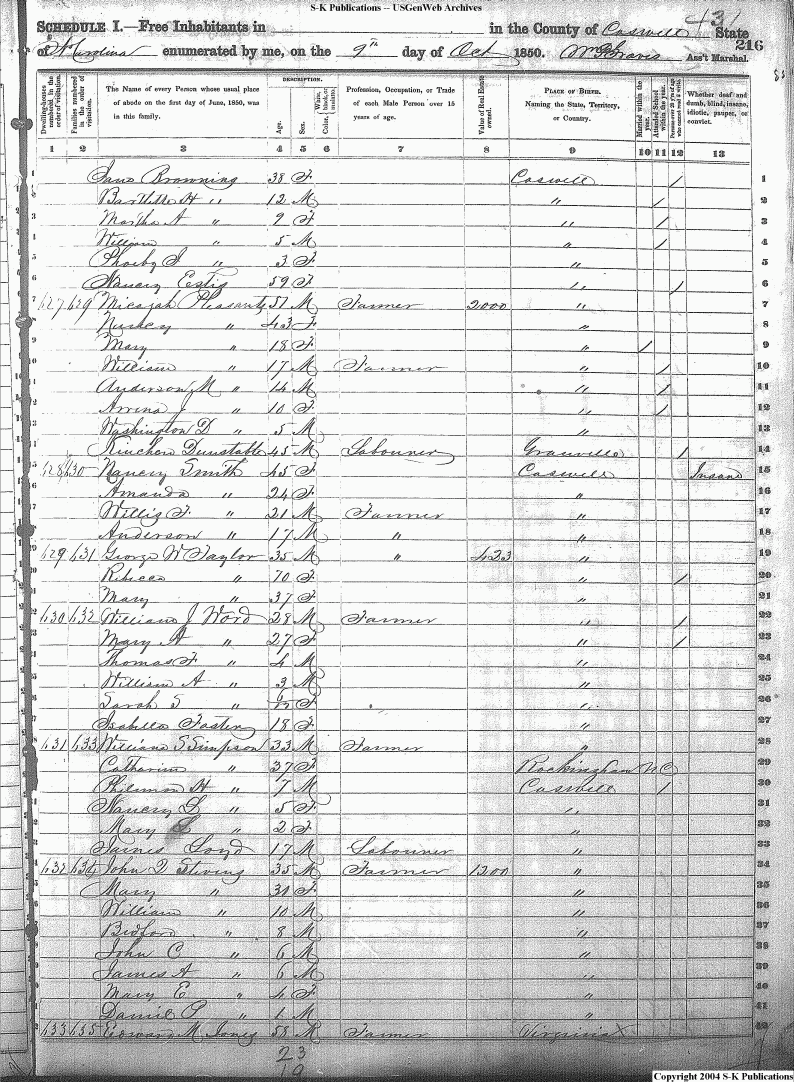 S-K Publications -- USGenWeb Archives
SCHEDULE I.—Free Inhabitants in in the County of Caswell State 431
of N Carolina enumerated by me, on the 9th day of Oct 1850. Ass't Marshal. 216
DESCRIPTION.
Dwelling-houses numbered in the order of visitation. Families numbered in the order of visitation. The Name of every Person whose usual place of abode on the first day of June, 1850, was in this family. Age. Sex. Color, White, black, or mulatto. Profession, Occupation, or Trade of each Male Person over 15 years of age. Value of Real Estate owned. PLACE OF BIRTH. Naming the State, Territory, or Country. Married within the year. Attended School within the year. Persons over 20 y'rs of age who cannot read & write. Whether deaf and dumb, blind, insane, idiotic, pauper, or convict.
1 2 3 4 5 6 7 8 9 10 11 12 13
1 Jane Browning 38 F Caswell / 1
2 Bartlette H " 12 M " / 2
3 Martha A " 9 F " / 3
4 William " 5 M " / 4
5 Phoeby J " 3 F " 5
6 Nancy Estis 59 F " / 6
7 627 629 Micajah Pleasants 57 M Farmer 2000 " 7
8 " 43 F " 8
9 Mary " 18 F " / 9
10 William " 17 M Farmer " / 10
11 Anderson M " 14 M " / 11
12 " 10 F " / 12
13 Washington D " 5 M " 13
14 Kinchen Dunstable 45 M Labourer Granville / 14
15 628 630 Nancy Smith 45 F Caswell Insane 15
16 Amanda " 24 F " 16
17 Willis F. " 21 M Farmer " 17
18 Anderson " 17 M " " 18
19 629 631 George W Taylor 35 M " 423 " 19
20 Rebecca " 70 F " / 20
21 Mary " 37 F " 21
22 630 632 William J Word 28 M Farmer " / 22
23 Mary A " 27 F " / 23
24 Thomas F " 4 M " 24
25 William A " 3 M " 25
26 Sarah S " 6/12 F " 26
27 Isabella 18 F " 27
28 631 633 William S Simpson 33 M Farmer " 28
29 Catharine " 37 F Rockingham NC 29
30 Philemon H " 7 M Caswell / 30
31 Nancy L " 5 F " 31
32 Mary " 2 F " 32
33 James Loyd 17 M Labourer " 33
34 632 634 John Q Stevens 35 M Farmer 1200 " 34
35 Mary " 31 F " 35
36 William " 10 M " 36
37 Bidford " 8 M " 37
38 John C " 6 M " 38
39 James A " 6 M " 39
40 Mary E " 4 F " 40
41 Daniel P " 1 M " 41
42 633 635 Edward M Jones 58 M Farmer Virginia 42
23
19
Copyright 2004 S-K Publications